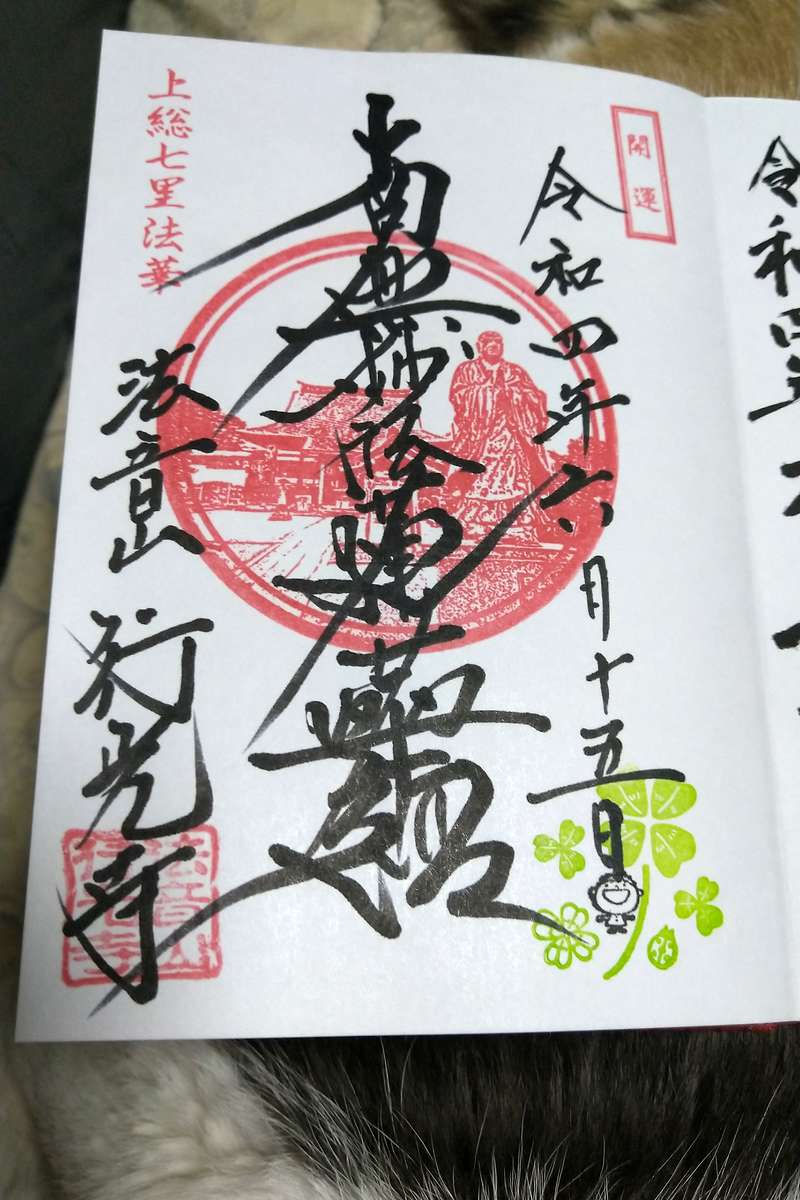 開運
令和四年六月十五日
南無妙法蓮華経
上総七里法華
法音山 行光寺
法音山
行光寺
令和四年